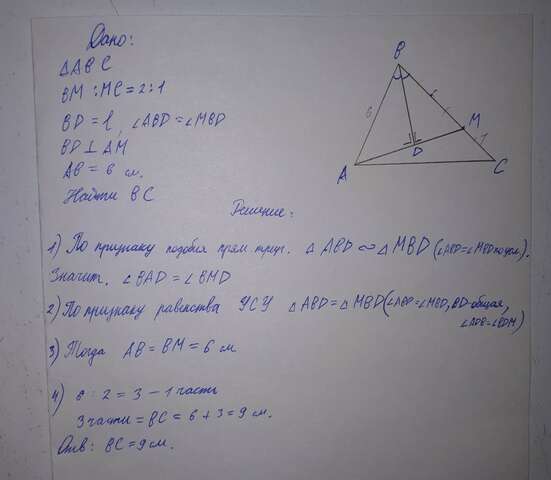 Дано:
△ABC
BM:MC=2:1
BD=l, ∠ABD=∠MBD
BD⊥AM
AB=6 см.
Найти BC
Решение:
B
6
M
1
D
A
C
1) По признаку подобия прям. треуг. △ABD∾△MBD(∠ABD=∠MBD по усл.).
Значит, ∠BAD=∠BMD
2) По признаку равенства УСУ △ABD=△MBD(∠ABD=∠MBD, BD-общая,
∠ADB=∠BDM)
3) Тогда AB=BM=6 см
4) 6:2=3-1 часть
3 части=BC=6+3=9 см.
Отв: BC=9 см.